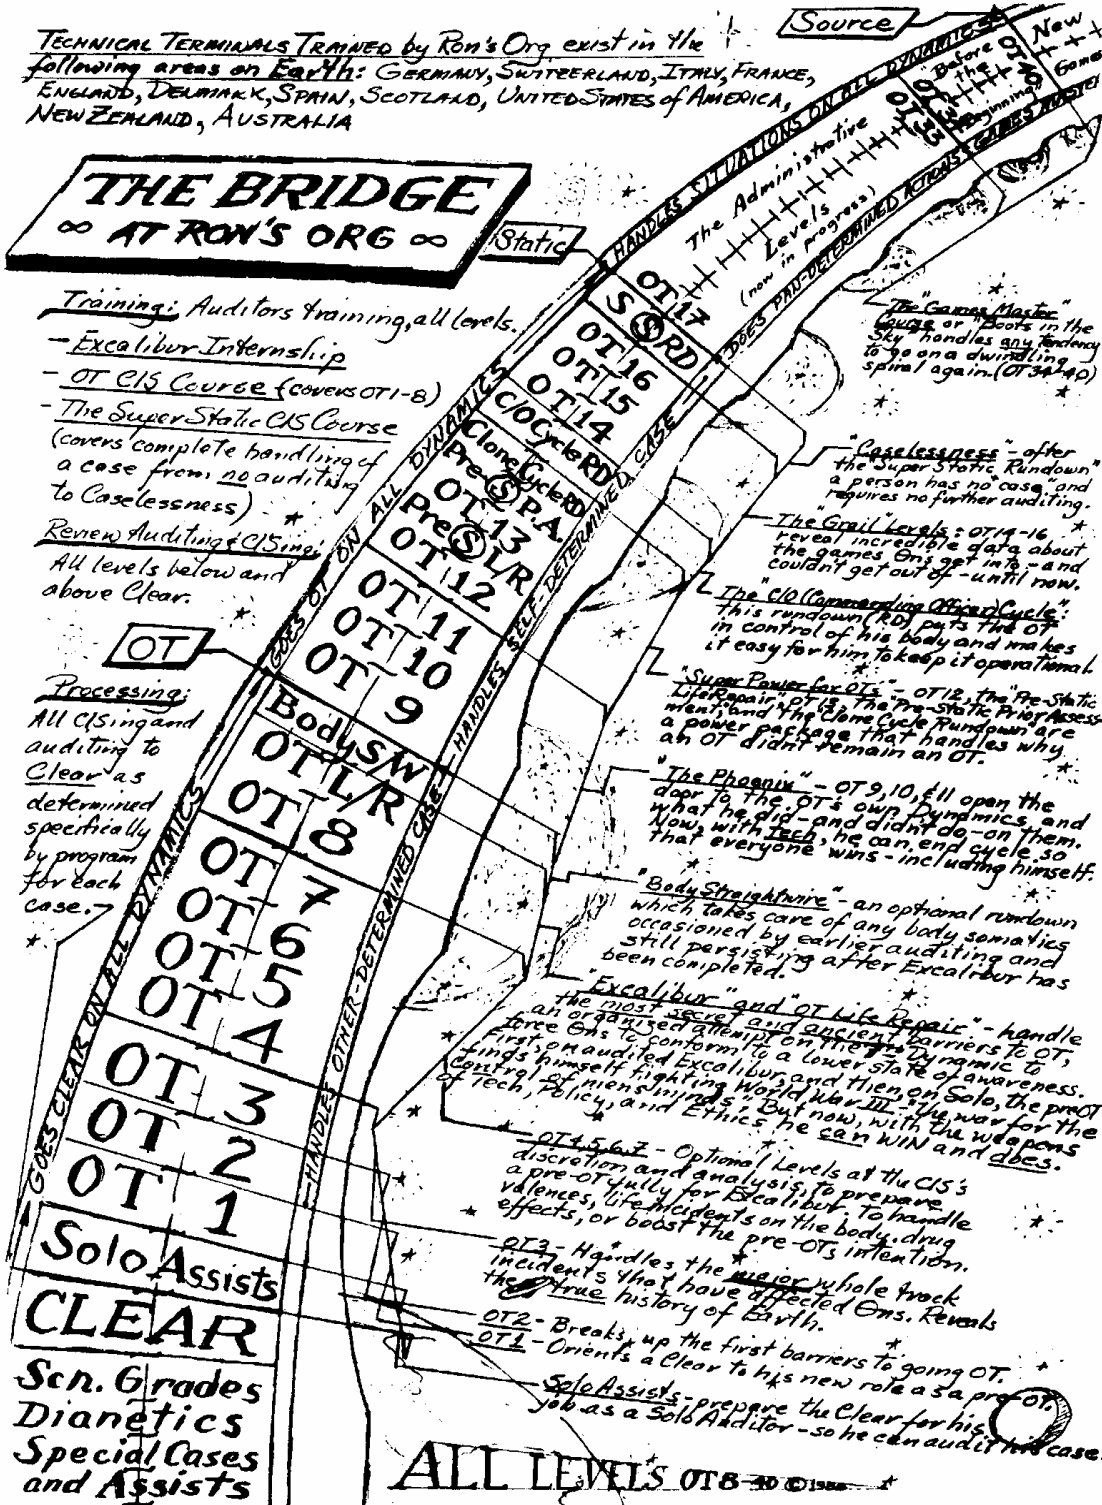 TECHNICAL TERMINALS TRAINED by Ron's Org exist in the
following areas on Earth: GERMANY, SWITZERLAND, ITALY, FRANCE,
ENGLAND, DENMARK, SPAIN, SCOTLAND, UNITED STATES of AMERICA,
NEW ZEALAND, AUSTRALIA
Source
New
Games
THE BRIDGE
∞ AT RON'S ORG ∞
Static
Training: Auditors training, all levels.
- Excalibur Internship
- OT C/S Course (covers OT1-8)
- The Super Static C/S Course
(covers complete handling of
a case from no auditing
to Caselessness)
Renew Auditing & C/Sing:
All levels below and
above Clear.
OT
Processing:
All C/Sing and
auditing to
Clear as
determined
specifically
by program
for each
case.
HANDLES SITUATIONS ON ALL DYNAMICS
DOES PAN-DETERMINED ACTIONS & GAMES MASTER
OT 40
"Before
the
Beginning"
OT 33
The Administrative
Levels
(now in progress)
OT 17
S S RD
OT 16
OT 15
OT 14
C/O Cycle RD
Clone Cycle RD
Pre S P.A.
OT 13
Pre S L/R
OT 12
OT 11
OT 10
OT 9
GOES OT ON ALL DYNAMICS
HANDLES SELF-DETERMINED CASE
Body S/W
OT L/R
OT 8
OT 7
OT 6
OT 5
OT 4
OT 3
OT 2
OT 1
GOES CLEAR ON ALL DYNAMICS
HANDLES OTHER-DETERMINED CASE
Solo Assists
CLEAR
Scn. Grades
Dianetics
Special Cases
and Assists
The "Games Master"
Course or "Boots in the
Sky" handles any tendency
to go on a dwindling
spiral again. (OT 34-40)
"Caselessness" - after
the "Super Static Rundown"
a person has no "case" and
requires no further auditing.
The "Grail" Levels: OT14-16
reveal incredible data about
the games Θns get into - and
couldn't get out of - until now.
The "C/O (Commanding Officer) Cycle":
this rundown (RD) puts the OT
in control of his body and makes
it easy for him to keep it operational.
"Super Power for OTs" - OT12, the "Pre-Static
Life Repair", OT13, The "Pre-Static Prior Assess-
ment," and the Clone Cycle Rundown are
a power package that handles why
an OT didn't remain an OT.
"The Phoenix" - OT 9, 10, & 11 open the
door to the OT's own Dynamics, and
what he did - and didn't do - on them.
Now, with Tech, he can end cycle so
that everyone wins - including himself.
"Body Streightwire" - an optional rundown
which takes care of any body somatics
occasioned by earlier auditing and
still persisting after Excalibur has
been completed.
"Excalibur" and "OT Life Repair" - handle
the most secret and ancient barriers to OT,
an organized attempt on the Dynamic to
force Θns to conform to a lower state of awareness.
First on audited Excalibur, and then, on Solo, the preOT
finds himself fighting World War III - "the war for the
control of men's minds". But now, with the weapons
of Tech, Policy, and Ethics he can WIN and does.
OT4,5,6,7 - Optional Levels at the C/S's
discretion and analysis, to prepare
a pre-OT fully for Excalibur. To handle
valences, life incidents on the body, drug
effects, or boost the pre-OTs intention.
OT3 - Handles the major whole track
incidents that have affected Θns. Reveals
the true history of Earth.
OT2 - Breaks up the first barriers to going OT.
OT1 - Orients a Clear to his new role as a pre-OT.
Solo Assists - prepare the Clear for his
job as a Solo Auditor - so he can audit his case.
ALL LEVELS OT8-40 ©